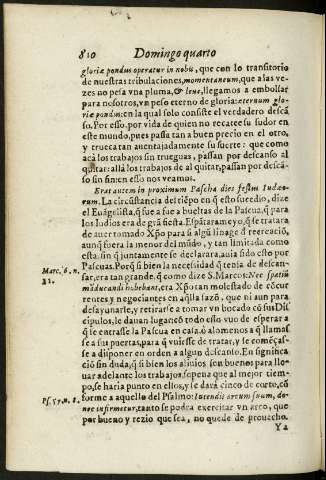 810 Domingo quarto
gloriæ pondus operatur in nobis, que con lo transitorio
de nuestras tribulaciones, momentaneum, que a las ve-
zes no pesa vna pluma, & leue, llegamos a embolsar
para nosotros, vn peso eterno de gloria: æternum glo-
riæ pondus: en la qual solo consiste el verdadero descã
so. Por esso, por vida de quien no recatee su sudor en
este mundo, pues passa tan a buen precio en el otro,
y trueca tan auentajadamente su suerte: que como
acà los trabajos sin treguas, passan por descanso al
quitar: allà los trabajos de al quitar, passan por descã-
so sin fin: en esso nos veamos.
Erat autem in proximum Pascha dies festus Iudæo-
rum. La circunstãcia del tiẽpo en q̃ esto sucedio, dize
el Euãgelista, q̃ fue a bueltas de la Pascua, q̃ para
los Iudios era de grã fiesta. Espãtarame yo, q̃ se tratara
de auer tomado Xp̃o para si algũ linage d' recreaciõ,
aunq̃ fuera la menor del mũdo, y tan limitada como
esta, sin q̃ juntamente se declarara, auia sido esto por
Pascuas. Porq̃ si bien la necessidad q̃ tenia de descan-
Marc. 6. n. sar, era tan grande, q̃ como dize S. Marcos: Nec spatiũ
31. mãducandi habebant, era Xp̃o tan molestado de cõcur
rentes y negociantes en aq̃lla sazõ, que ni aun para
desayunarle, y retirarse a tomar vn bocado cõ sus Dis
cipulos, le dauan lugar: cõ todo esso vuo de esperar a
q̃ se entrasse la Pascua en casa, o alomenos a q̃ llamas
se a sus puertas, para q̃ vuiesse de tratar, y se começas-
se a disponer en orden a algun descanso. En significa
ciõ sin duda, q̃ si bien los aliuios son buenos para lle-
uar adelante los trabajos, sopena que al mejor tiem-
po, se haria punto en ellos, y se darà cinco de corto, cõ
Ps. 57. n. 8. forme a aquello del Psalmo: Intendit arcum suum, do-
nec infirmetur, tanto se podra exercitar vn arco, que
por bueno y rezio que sea, no quede de prouecho.
Y a